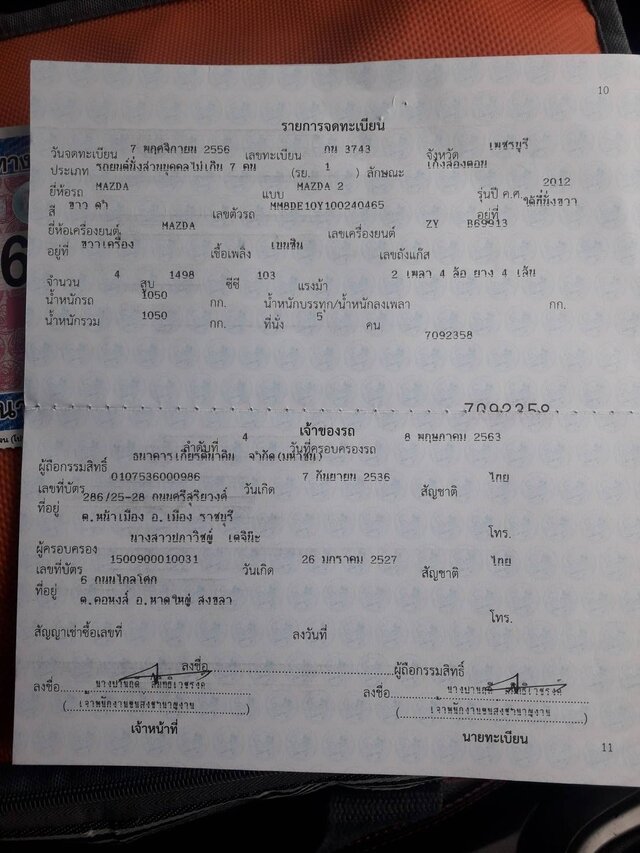 10
รายการจดทะเบียน
วันจดทะเบียน 7 พฤศจิกายน 2556 เลขทะเบียน กน 3743 จังหวัด เพชรบุรี
ประเภท รถยนต์นั่งส่วนบุคคลไม่เกิน 7 คน (รย. 1 ) ลักษณะ เก๋งสองตอน
ยี่ห้อรถ MAZDA แบบ MAZDA 2 รุ่นปี ค.ศ. 2012
สี ขาว ดำ เลขตัวรถ MM8DE10Y100240465 อยู่ที่ ใต้ที่นั่งขวา
ยี่ห้อเครื่องยนต์ MAZDA เลขเครื่องยนต์ ZY B69913
อยู่ที่ ขวาเครื่อง เชื้อเพลิง เบนซิน เลขถังแก๊ส
จำนวน 4 สูบ 1498 ซีซี 103 แรงม้า 2 เพลา 4 ล้อ ยาง 4 เส้น
น้ำหนักรถ 1050 กก. น้ำหนักบรรทุก/น้ำหนักลงเพลา กก.
น้ำหนักรวม 1050 กก. ที่นั่ง 5 คน
7092358
7092358
เจ้าของรถ
ลำดับที่ 4 วันที่ครอบครองรถ 8 พฤษภาคม 2563
ผู้ถือกรรมสิทธิ์ ธนาคารเกียรตินาคิน จำกัด(มหาชน)
เลขที่บัตร 0107536000986 วันเกิด 7 กันยายน 2536 สัญชาติ ไทย
ที่อยู่ 286/25-28 ถนนศรีสุริยวงศ์
ต.หน้าเมือง อ.เมือง ราชบุรี โทร.
ผู้ครอบครอง นางสาวปภาวิชญ์
เลขที่บัตร 1500900010031 วันเกิด 26 มกราคม 2527 สัญชาติ ไทย
ที่อยู่ 6 ถนน
ต.คอหงส์ อ.หาดใหญ่ สงขลา
โทร.
สัญญาเช่าซื้อเลขที่ ลงวันที่
ลงชื่อ ผู้ถือกรรมสิทธิ์
ลงชื่อ ลงชื่อ
( เจ้าพนักงานขนส่งชำนาญงาน ) ( เจ้าพนักงานขนส่งชำนาญงาน )
เจ้าหน้าที่ นายทะเบียน
11